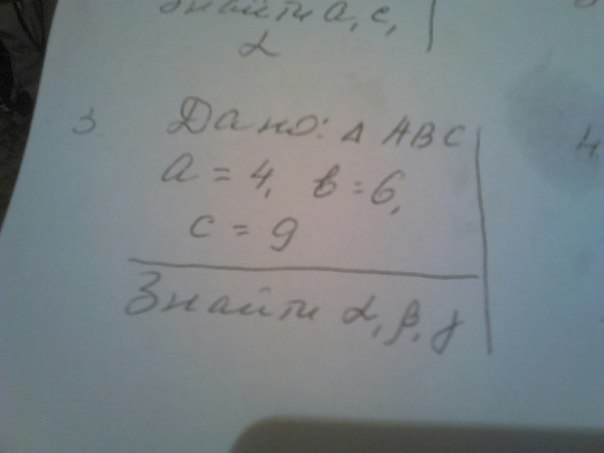 Знайти a, c,
α
3 Дано: Δ ABC
a = 4, в = 6,
c = 9
Знайти α, β, γ
4.